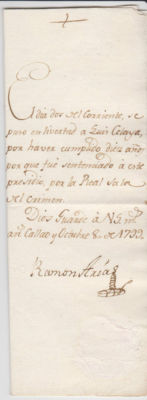 El dia dos del Corriente, se
puso en livertad á Luis Celaya,
por haver cumplido diez años
por que fué sentenciado á este
presidio, por la Real Sala
del Crimen.
Dios Guarde á V.S. ms.
añs. Callao y Octubre 8,, de 1799.
Ramon Arias